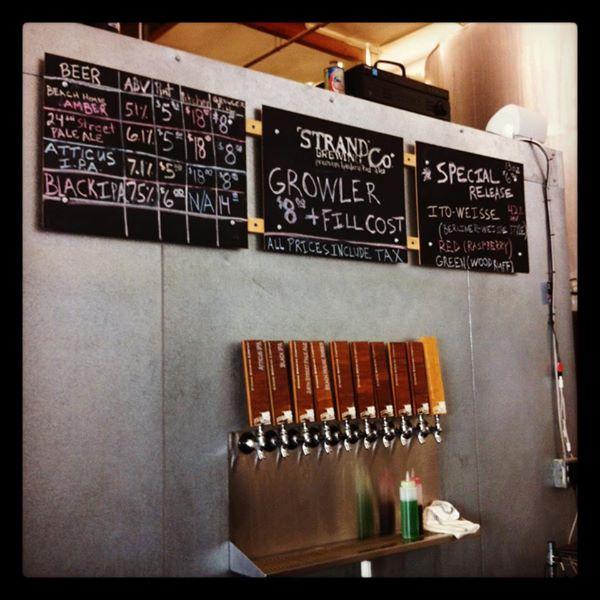 BEER ABV Pint Pitcher GROWLER
BEACH HOUSE AMBER 5.1% $5 $18 $8
24TH Street PALE ALE 6.1% $5 $18 $8
ATTICUS I.P.A. 7.1% $5 $18 $8
BLACK IPA 7.5% $6 N/A
STRAND
BREWING Co
GROWLER
$8 + FILL COST
ALL PRICES INCLUDE TAX
* SPECIAL
RELEASE
ITO-WEISSE
(BERLINER-WEISSE STYLE)
RED (RASPBERRY)
GREEN (WOODRUFF)
ATTICUS IPA
BLACK IPA
24TH STREET PALE ALE
BEACH HOUSE AMBER